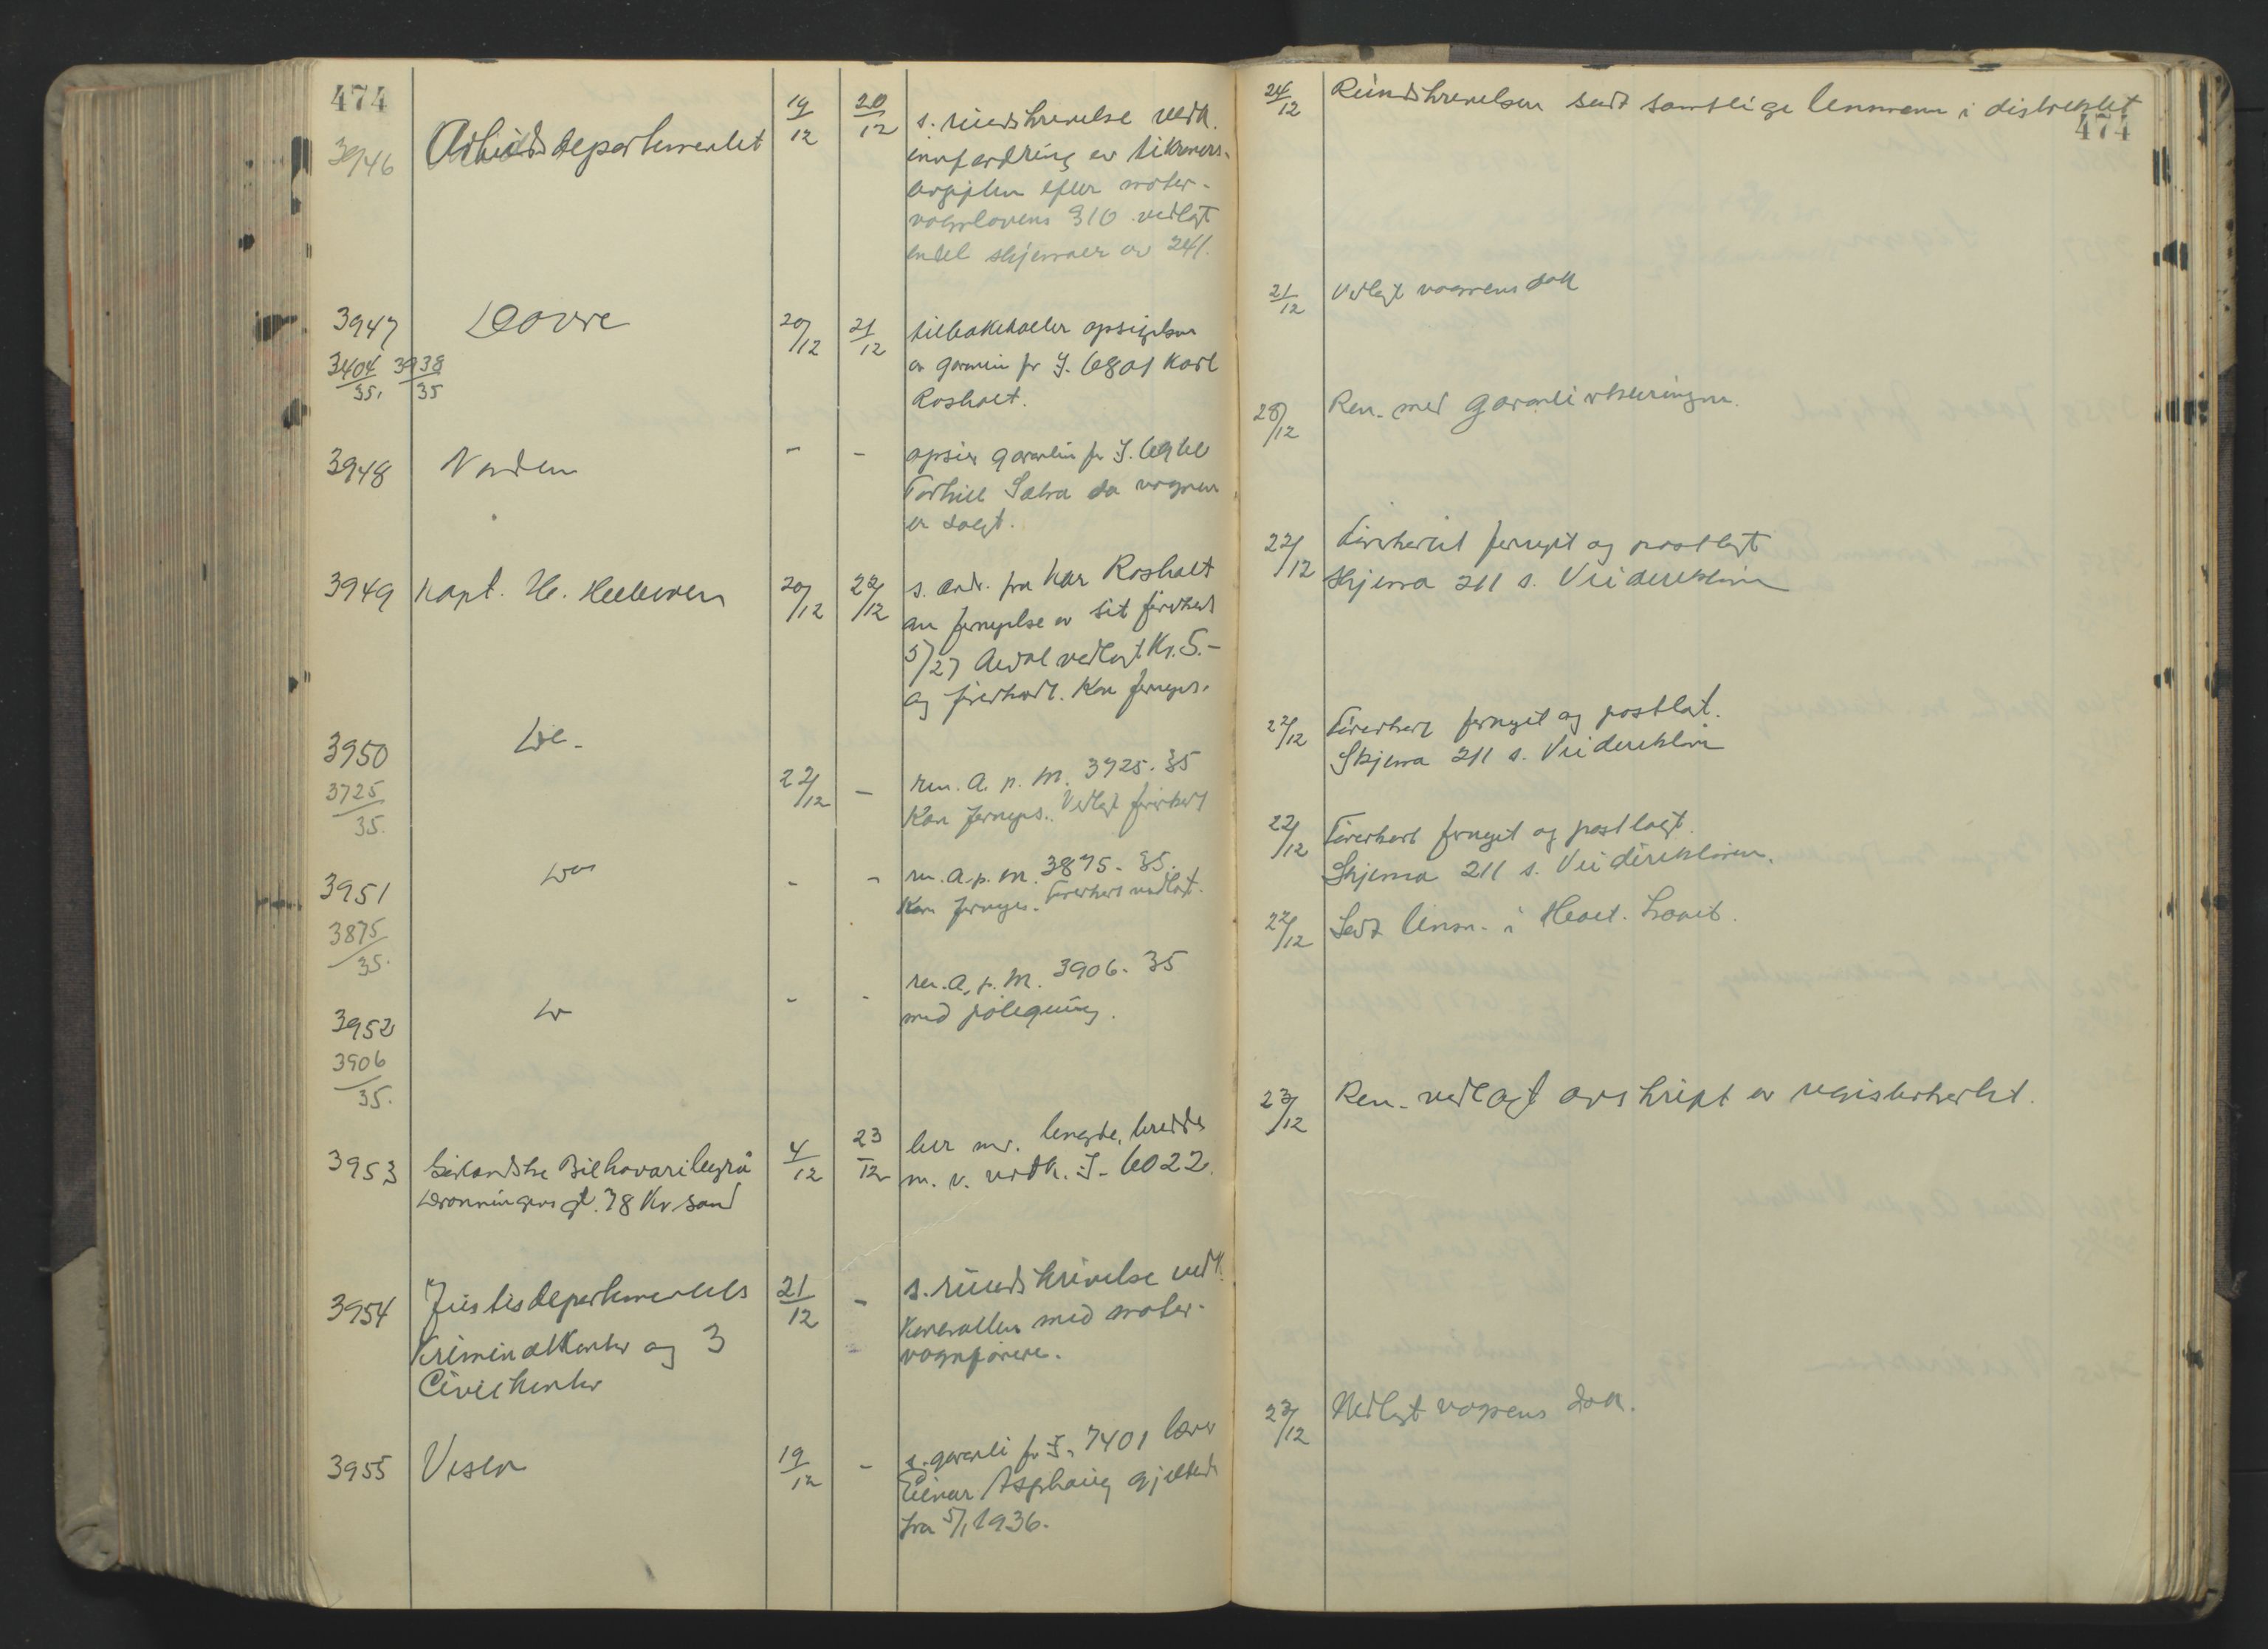 474
3946 Arbeidsdepartementet 19/12 20/12 s. rundskrivelse vedk.
innfordring av
avgiften efter motor-
vognlovens §10 vedlagt
endel skjemaer av 241.
3947 Dovre 20/12 21/12 tilbakekaller opsigelsen
3404/35. 3938/35 av garantin for I. 6801 Karl
Rosholt.
3948 Norden - - opsier garantin for I.
Sætra da vognen
er solgt.
3949 Kapt. H. 20/12 22/12 s. andr. fra Kar Rosholt
om fornyelse av sit førerkort
5/27 Avdal vedlagt Kr. 5.-
og førerkort. Kan fornyes.
3950 Do - 22/12 - ren. A. p. M. 3725. 35
3725/35. Kan fornyes. Vedlagt førerkort
3951 Do - - ren. A. p. M. 3875 - 35.
Kan fornyes. Førerkort vedlagt.
3875/35.
3952 Do - - ren. A. p. M. 3906. 35
med påtegning.
3906/35.
3953 Sørlandske Bilhavaribyrå 4/12 23/12 ber mr. lengde, bredde
Dronningens gt. 38 Kr sand m. v. vedk. I - 6022.
3954 Justisdepartementets 21/12 - s. rundskrivelse vedk.
Kriminalkontor og 3 kontrollen med motor-
Civilkontor vognførere.
3955 Vesta 19/12 - s. garanti for I. 7401 lærer
Einar Asphaug gjeldende
fra 5/1 1936.
474
24/12 Rundskrivelsen sendt samtlige lensmenn i distriktet
21/12 Vedlagt vognens dok
28/12 Ren. med garantierklæringen.
22/12 Førerkortet fornyet og postlagt
Skjema 211 s. Veidirektøren
22/12 Førerkort fornyet og postlagt.
Skjema 211 s. Veidirektøren
22/12 Førerkort fornyet og postlagt.
Skjema 211 s. Veidirektøren.
22/12 Sendt lensm. i Holt.
23/12 Ren. vedlagt avskript av registerkortet.
23/12 Vedlagt vognens dok.